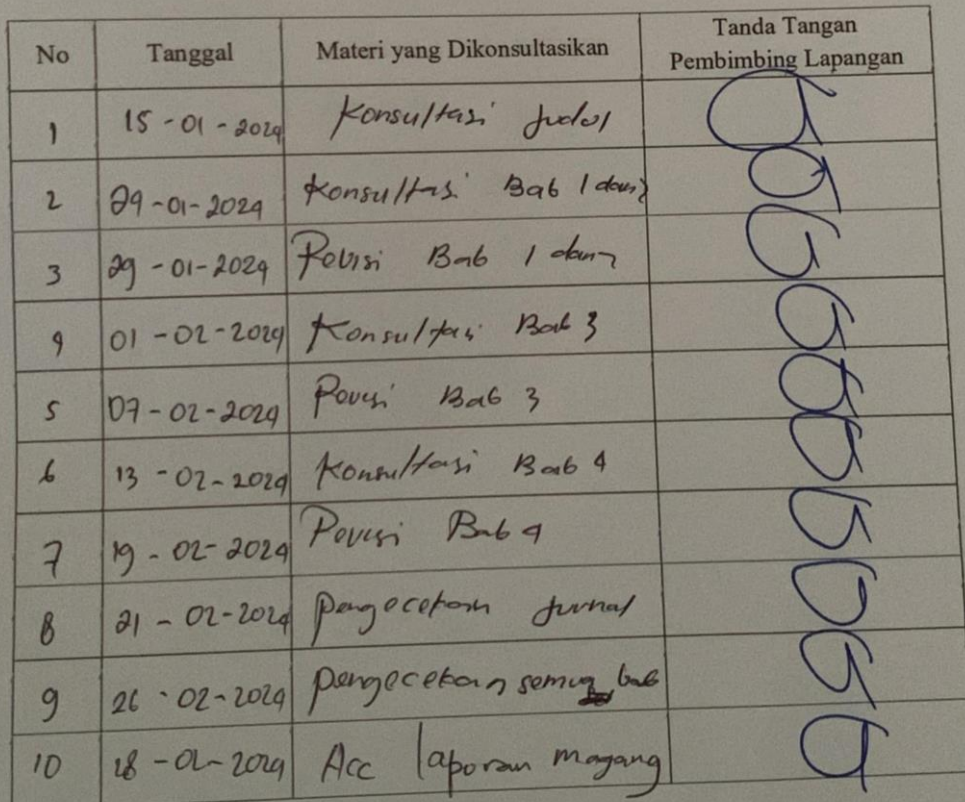 No Tanggal Materi yang Dikonsultasikan Tanda Tangan Pembimbing Lapangan
1 15-01-2024 Konsultasi Judul
2 29-01-2024 Konsultasi Bab 1 dan 2
3 29-01-2024 Revisi Bab 1 dan 2
4 01-02-2024 Konsultasi Bab 3
5 07-02-2024 Revisi Bab 3
6 13-02-2024 Konsultasi Bab 4
7 19-02-2024 Revisi Bab 4
8 21-02-2024 Pengecekan Jurnal
9 26-02-2024 Pengecekan semua bab
10 28-02-2024 Acc laporan magang